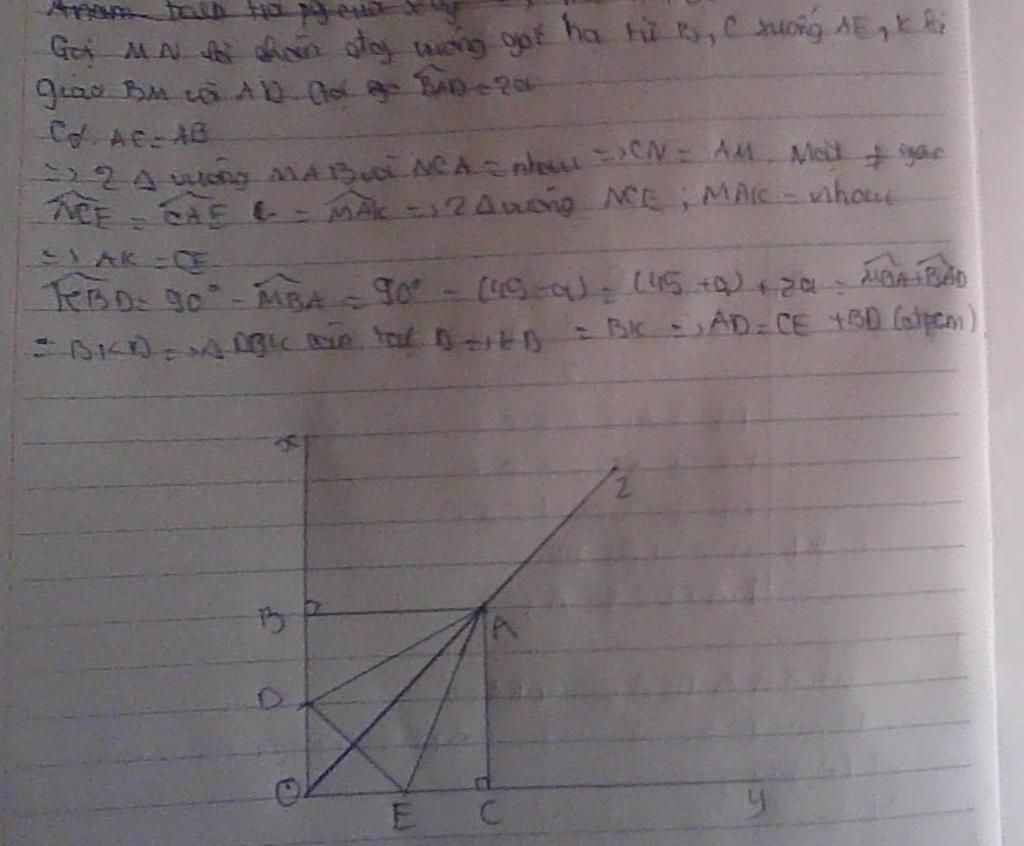 Gọi M N là chân đg vuông góc hạ từ B, C xuống AE, K là
giao BM với AD Gọi BAD = 2a
Có AC = AB
=> 2 Δ vuông MAB với NCA = nhau => CN = AM. Mặt ≠ góc
NCE = CAE = MAK => 2 Δ vuông NCE ; MAK = nhau
=> AK = CE
KBD = 90° - MBA = 90° - (45 - a) = (45 + a) + 2a = MBA + BAD
= BKD => Δ DBK cân tại D = BK => AD = CE + BD (đpcm)
x
I
B
A
D
O
E
C
y